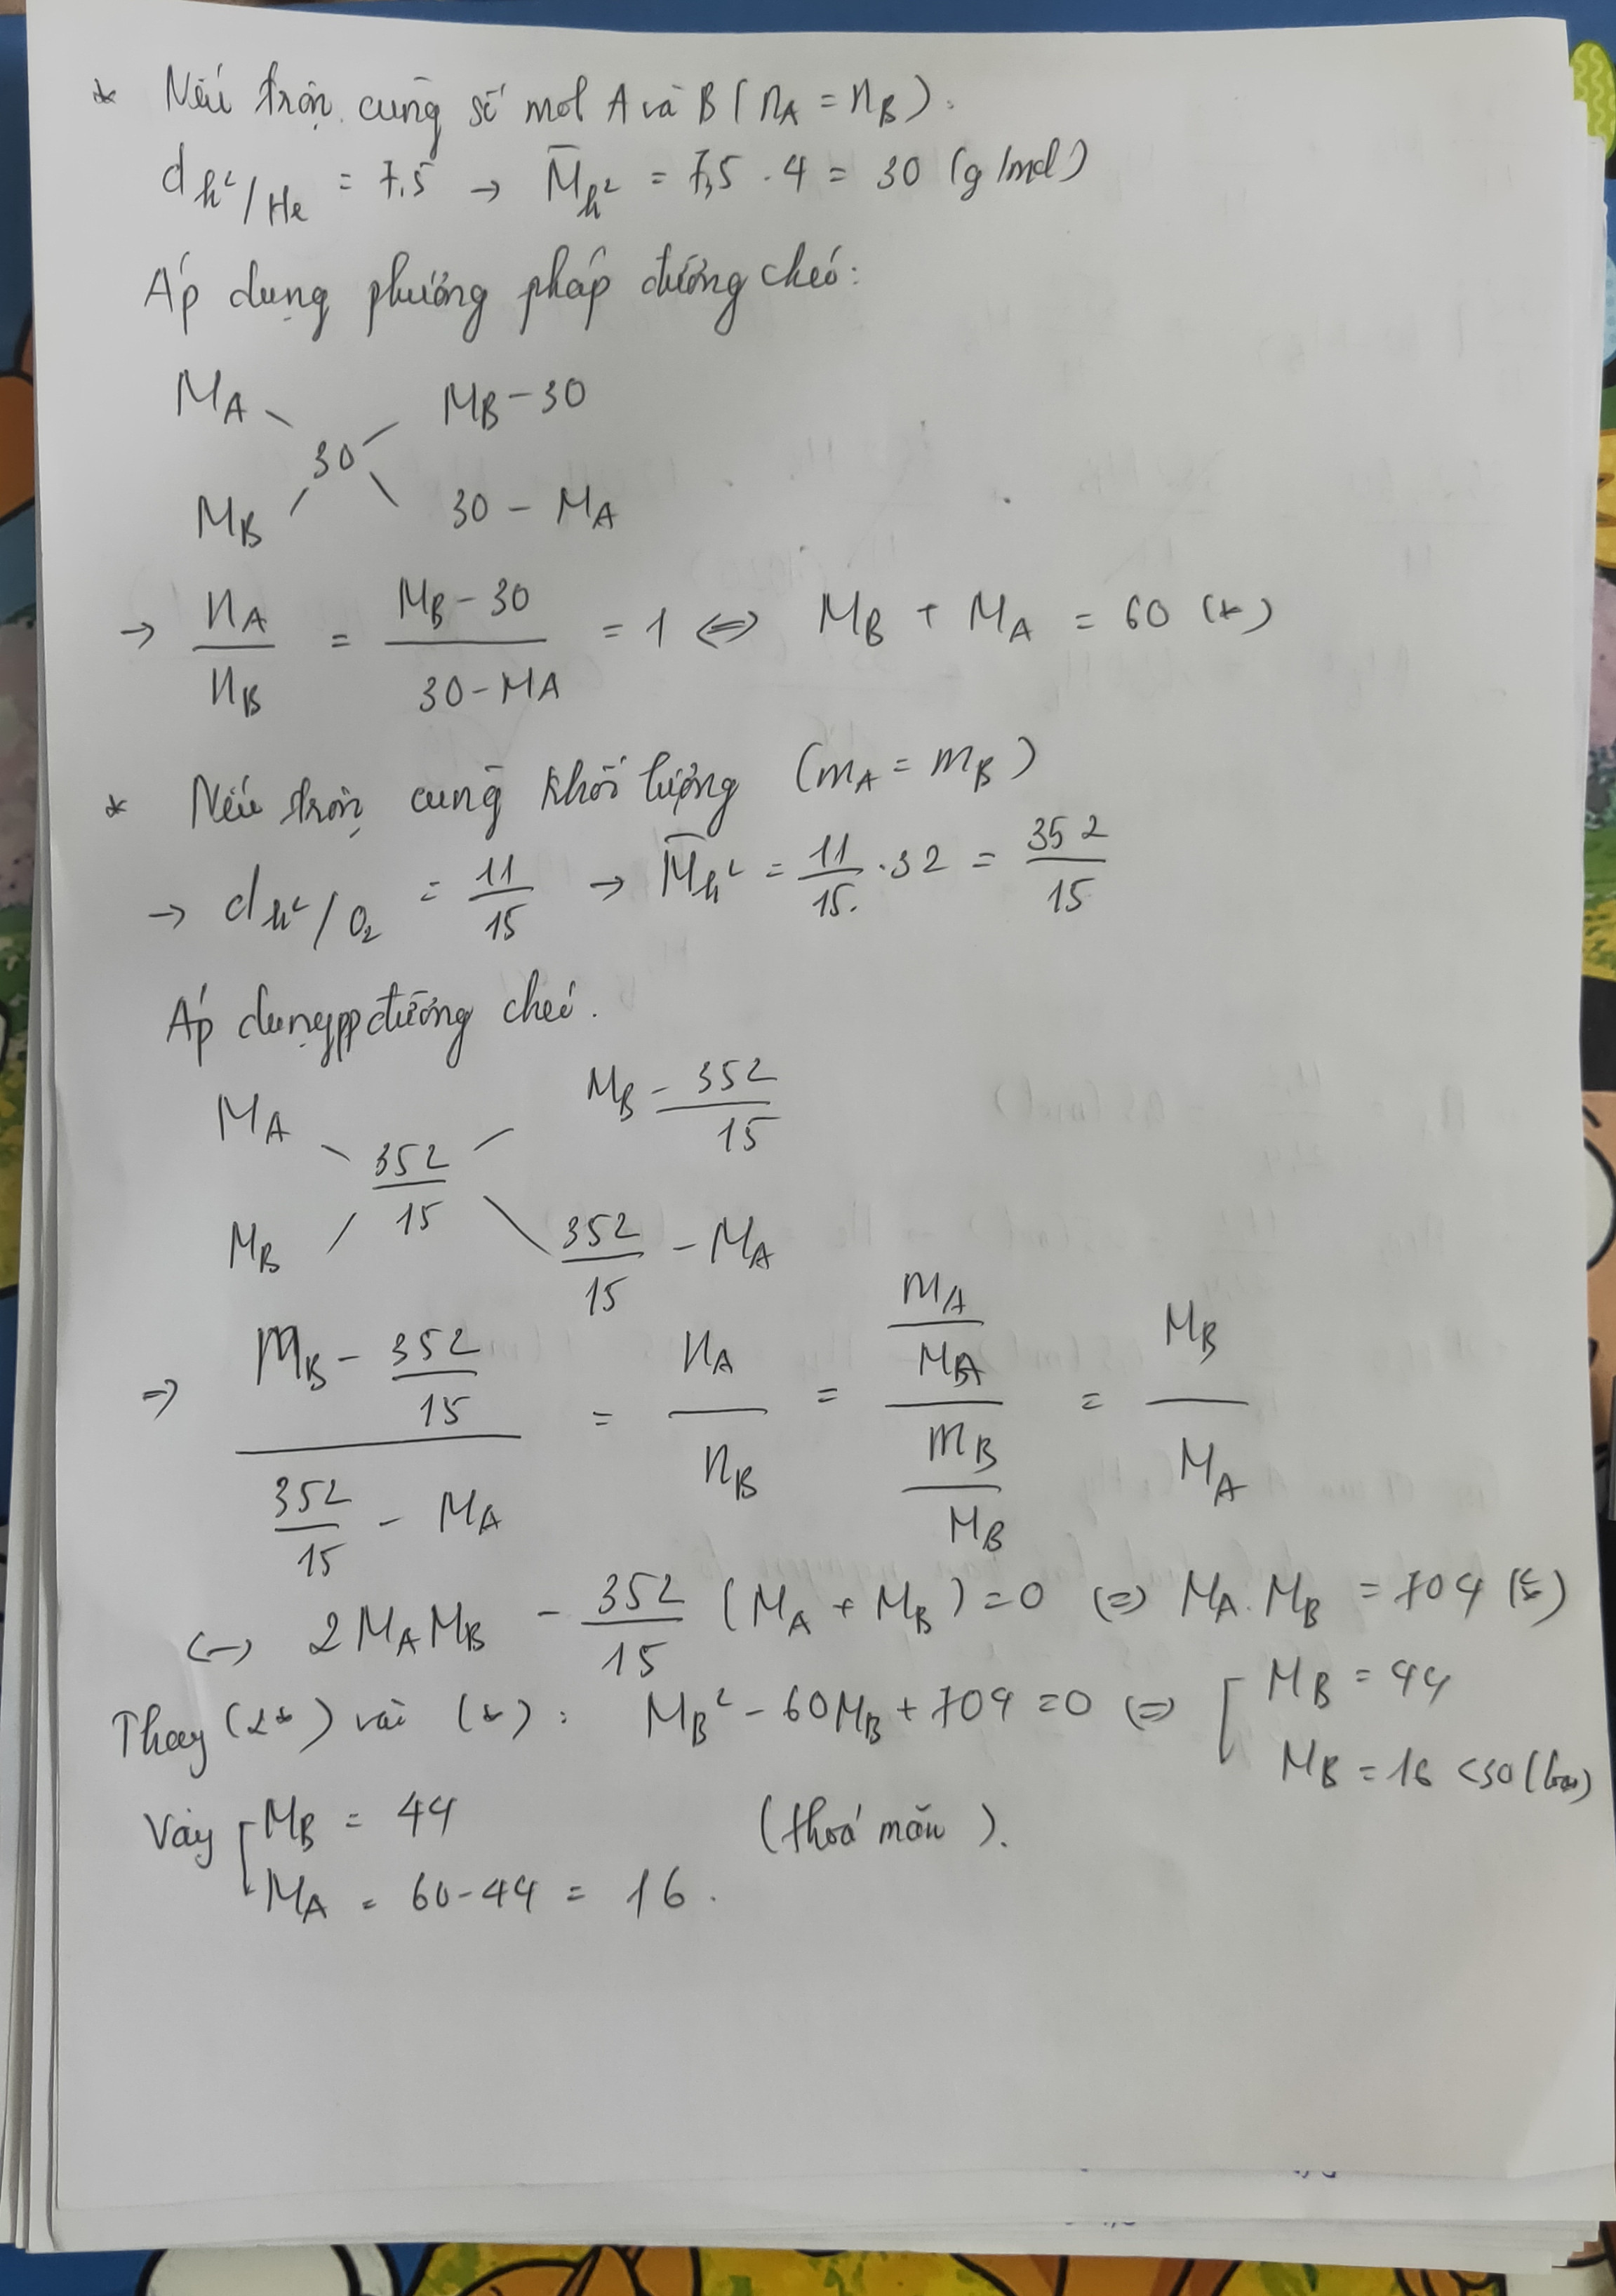 * Nếu trộn cùng số mol A và B (nA = nB).
d h²/He = 7,5 → M̄h² = 7,5 . 4 = 30 (g/mol)
Áp dụng phương pháp đường chéo:
MA MB - 30
30
MB 30 - MA
→ nA/nB = (MB - 30)/(30 - MA) = 1 ⇔ MB + MA = 60 (*)
* Nếu trộn cùng khối lượng (mA = mB)
→ d h²/O2 = 11/15 → M̄h² = 11/15 . 32 = 352/15
Áp dụng pp đường chéo.
MA MB - 352/15
352/15
MB 352/15 - MA
⇒ (MB - 352/15)/(352/15 - MA) = nA/nB = (mA/MA)/(mB/MB) = MB/MA
↔ 2MAMB - 352/15 (MA + MB) = 0 ⇔ MA.MB = 704
Thay (2*) vào (*): MB² - 60MB + 704 = 0 ⇔ [ MB = 44
MB = 16 < 30 (loại)
Vậy [ MB = 44 (thoả mãn).
MA = 60 - 44 = 16.